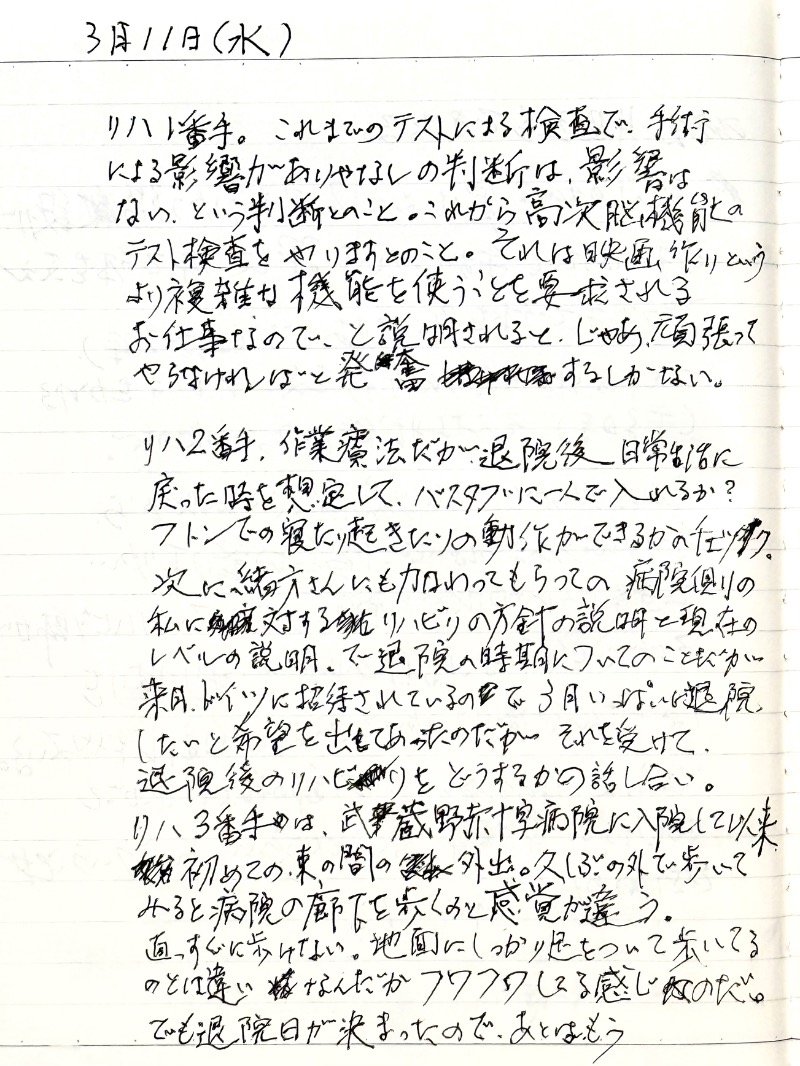 3月11日(水)
リハ1番手。これまでのテストによる検査で、手術
による影響がありやなしの判断は、影響は
ない、という判断とのこと。これから高次脳機能の
テスト検査をやりますとのこと。それは映画作りという
より複雑な機能を使うことを要求される
お仕事なので、と説明されると、じゃあ、頑張って
やらなければと発奮するしかない。
リハ2番手、作業療法だが、退院後日常生活に
戻った時を想定して、バスタブに一人で入れるか?
フトンでの寝たり起きたりの動作ができるかのチェック。
次に緒方さんにも加わってもらっての病院側の
私に対するリハビリの方針の説明と現在の
レベルの説明。で退院の時期についてのことだが
来月、ドイツに招待されているので3月いっぱいは退院
したいと希望を出してあったのだがそれを受けて、
退院後のリハビリをどうするかの話し合い。
リハ3番手は、武蔵野赤十字病院に入院して以来
初めての、束の間の外出。久しぶの外で歩いて
みると病院の廊下を歩くのと感覚が違う。
真っすぐに歩けない。地面にしっかり足をついて歩いてる
のとは違いなんだかフワフワしてる感じなのだ。
でも退院日が決まったので、あとはもう